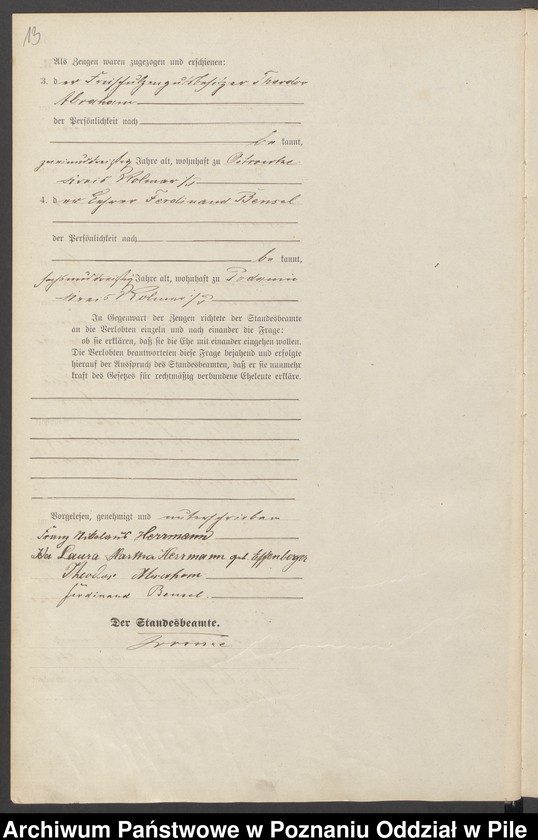 13
Als Zeugen waren zugezogen und erschienen:
3. der Freischulzengutsbesitzer Theodor
Abraham
der Persönlichkeit nach
be kannt,
zweiunddreißig Jahre alt, wohnhaft zu
Kreis Kolmar i/P
4. der Lehrer Ferdinand Bensel
der Persönlichkeit nach
be kannt,
sechsunddreißig Jahre alt, wohnhaft zu Podanin
Kreis Kolmar i/P
In Gegenwart der Zeugen richtete der Standesbeamte
an die Verlobten einzeln und nach einander die Frage:
ob sie erklären, daß sie die Ehe mit einander eingehen wollen.
Die Verlobten beantworteten diese Frage bejahend und erfolgte
hierauf der Ausspruch des Standesbeamten, daß er sie nunmehr
kraft des Gesetzes für rechtmäßig verbundene Eheleute erkläre.
Vorgelesen, genehmigt und unterschrieben
Franz Nikolaus Herrmann
Laura Martha Herrmann geb. Effenberger
Theodor Abraham
Ferdinand Bensel.
Der Standesbeamte.
Archiwum Państwowe w Poznaniu Oddział w Pile